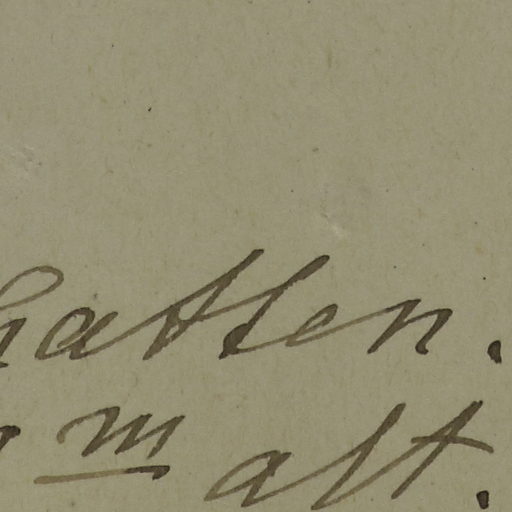 hatten.
m alt.